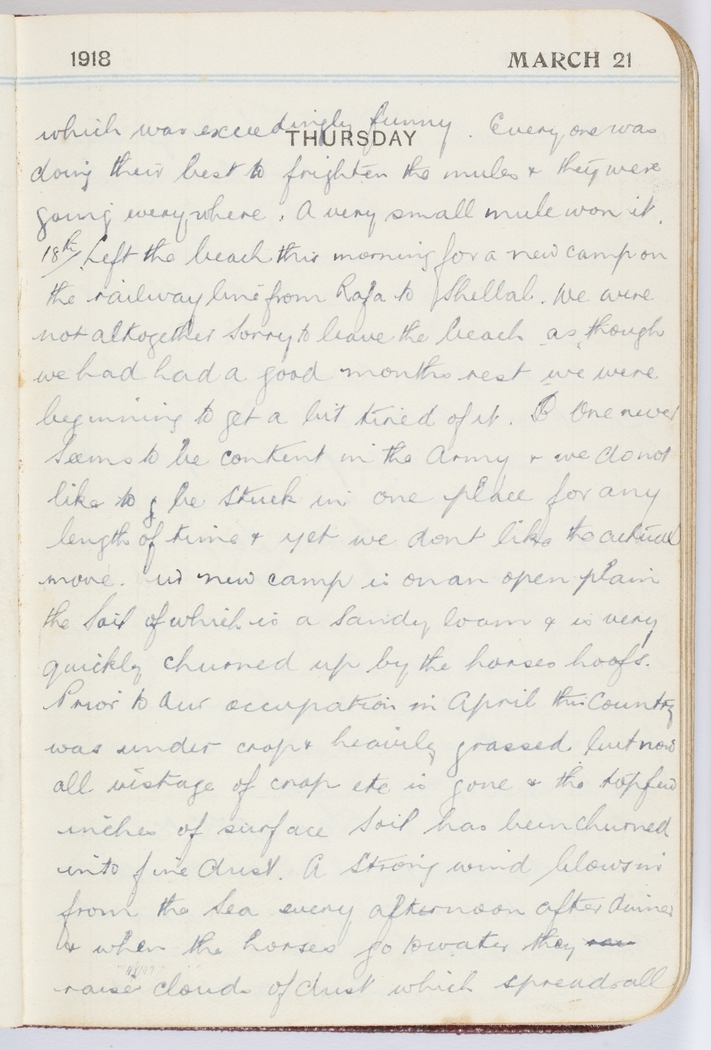 1918 MARCH 21
THURSDAY
which was exceedingly funny. Everyone was
doing their best to frighten the mules & they were
going everywhere. A very small mule won it.
18th/ Left the beach this morning for a new camp on
the railway line from Rafa to Shellal. We were
not altogether sorry to leave the beach as though
we had had a good months rest we were
beginning to get a bit tired of it. One never
seems to be content in the Army & we do not
like to be stuck in one place for any
length of time & yet we dont like the actual
move. new camp is on an open plain
the soil of which is a sandy loam & is very
quickly churned up by the horses hoofs.
Prior to our occupation in April this Country
was under crop & heavily grassed but now
all vistage of crop etc is gone & the top few
inches of surface soil has been churned
into fine dust. A strong wind blows in
from the sea every afternoon after dinner
& when the horses go to water they
raise clouds of dust which spreads all